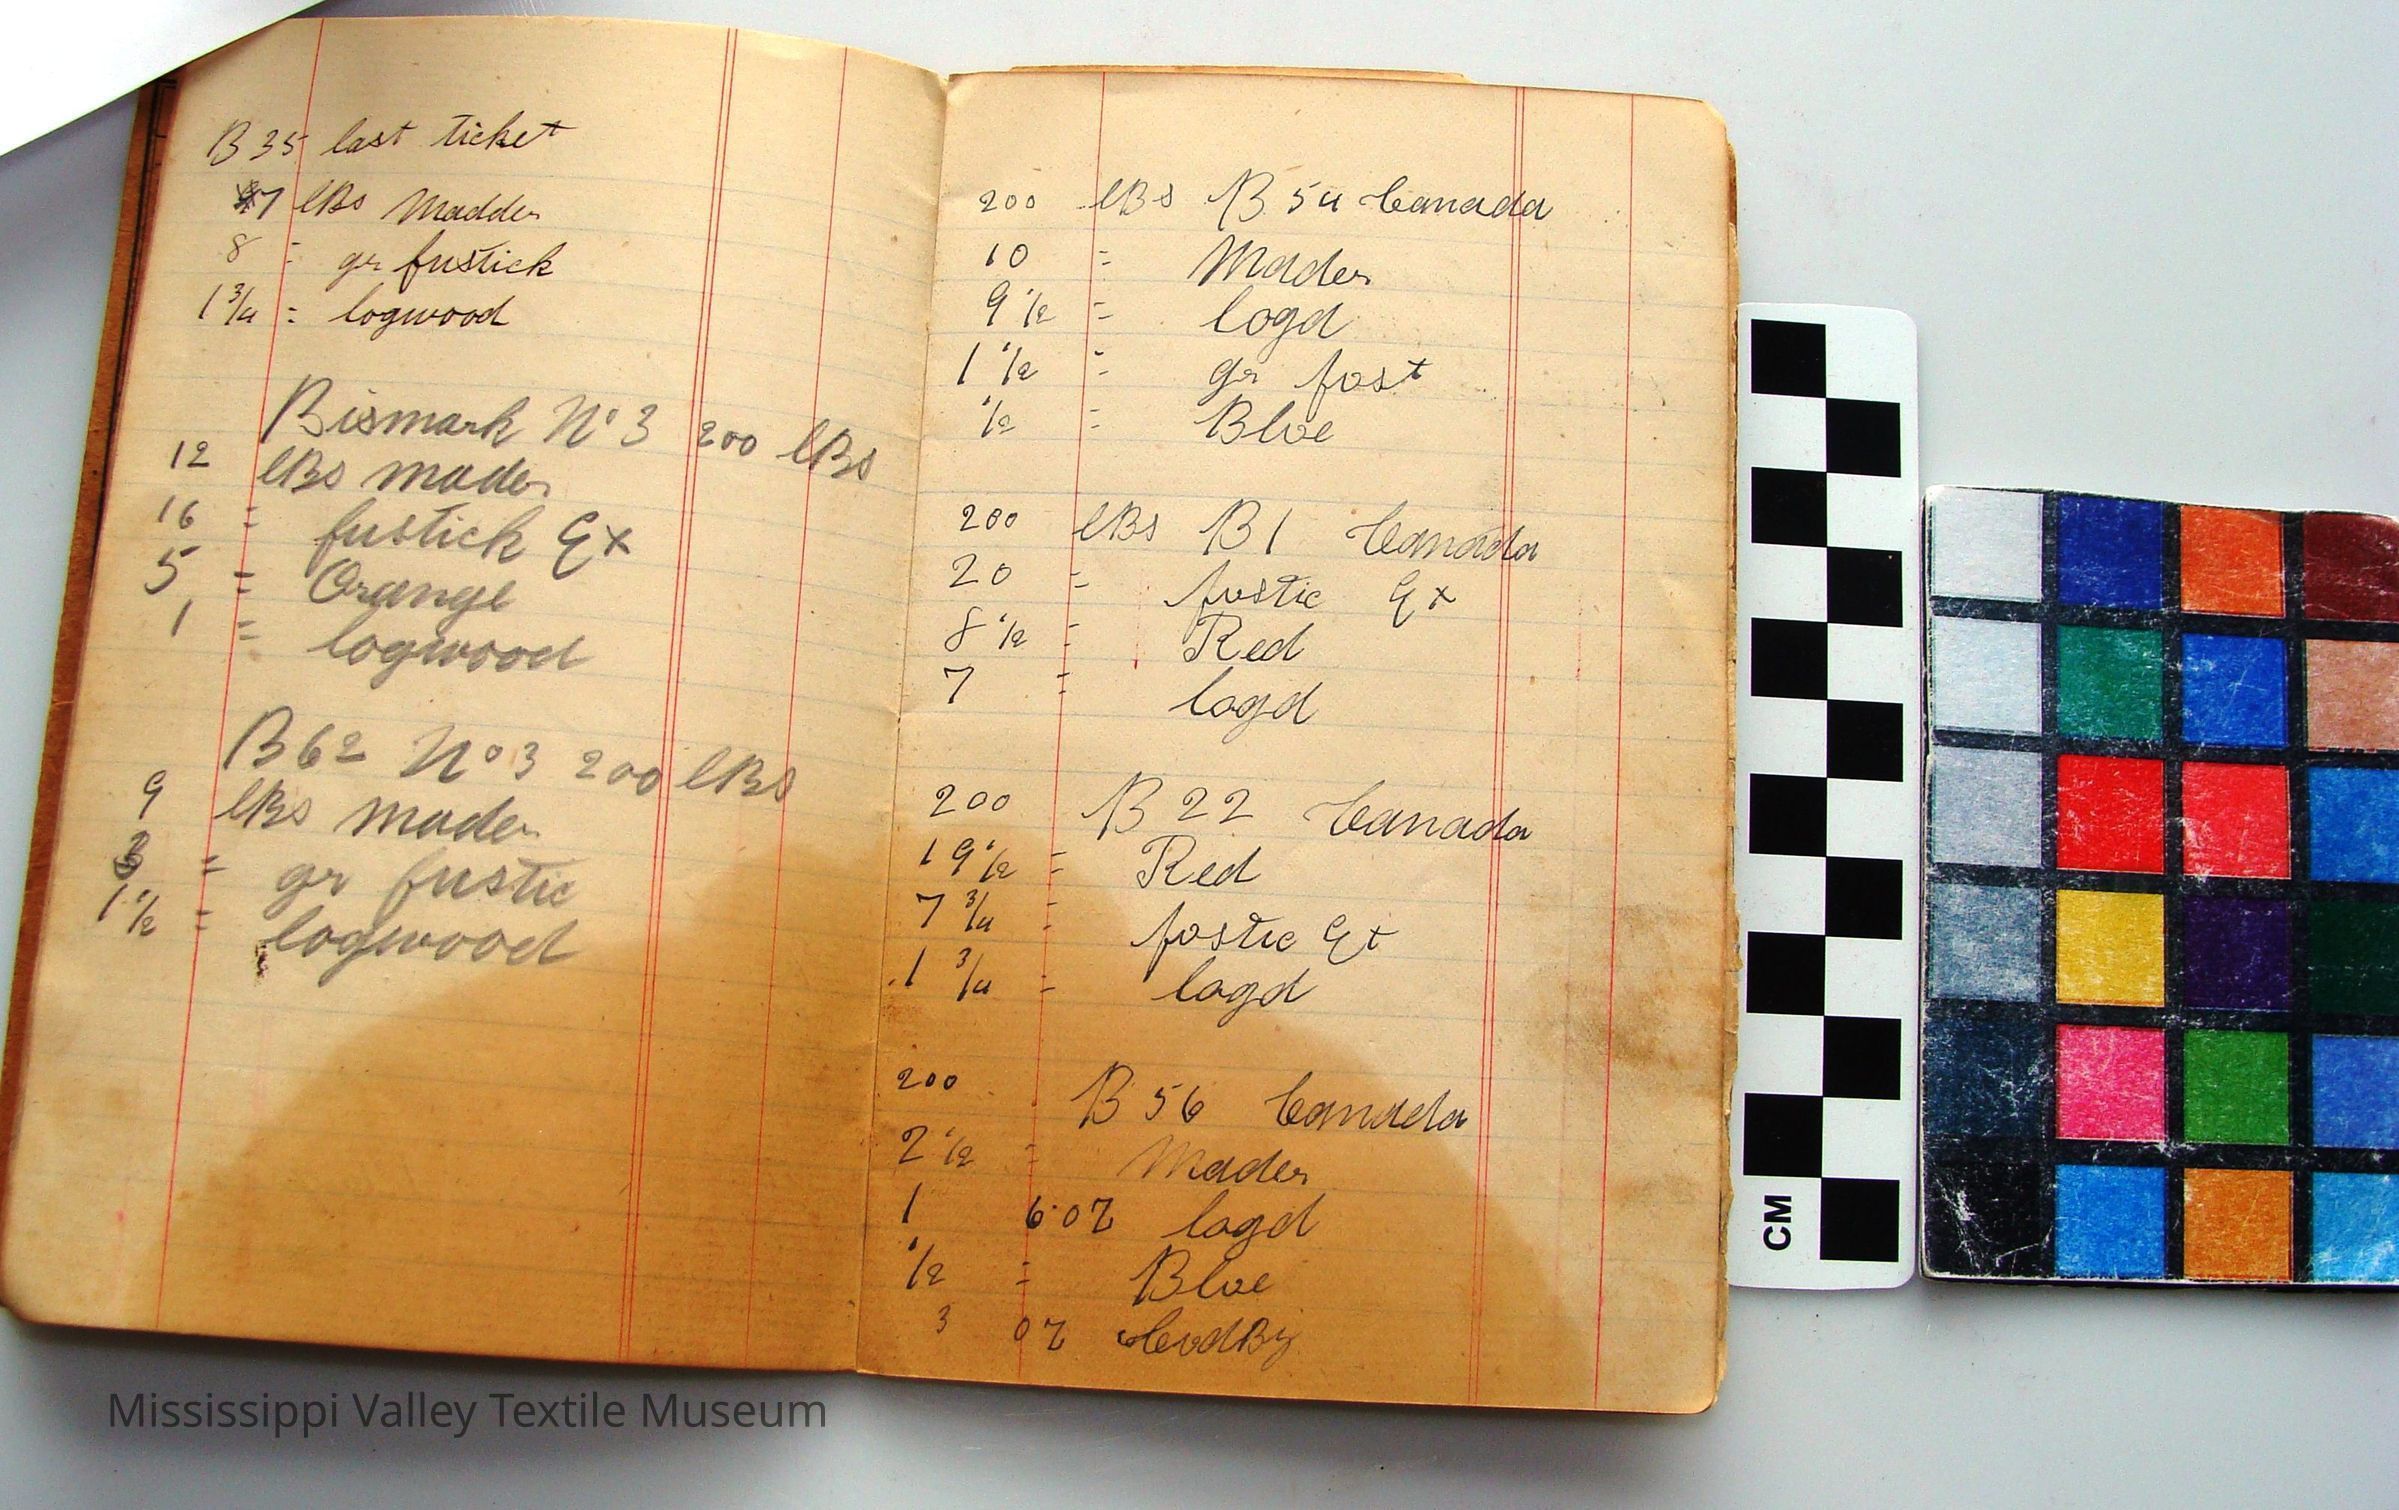 B 35 last ticket
7 lBs Madder
8 = gr fustick
1 3/4 = logwood
Bismark No 3 200 lBs
12 lBs mader
16 = fustick Ex
5 = Orange
1 = logwood
B 62 No 3 200 lBs
9 lBs mader
3 = gr fustic
1 1/2 = logwood
200 lBs B 54 Canada
10 = Mader
9 1/2 = logd
1 1/2 = gr fust
1/2 = Blue
200 lBs B 1 Canada
20 = fustic Ex
8 1/2 = Red
7 = logd
200 B 22 Canada
19 1/2 = Red
7 3/4 = fustic Ex
1 3/4 = logd
200 B 56 Canada
2 1/2 = Mader
1 6 oz logd
1/2 = Blue
3 oz
CM
Mississippi Valley Textile Museum